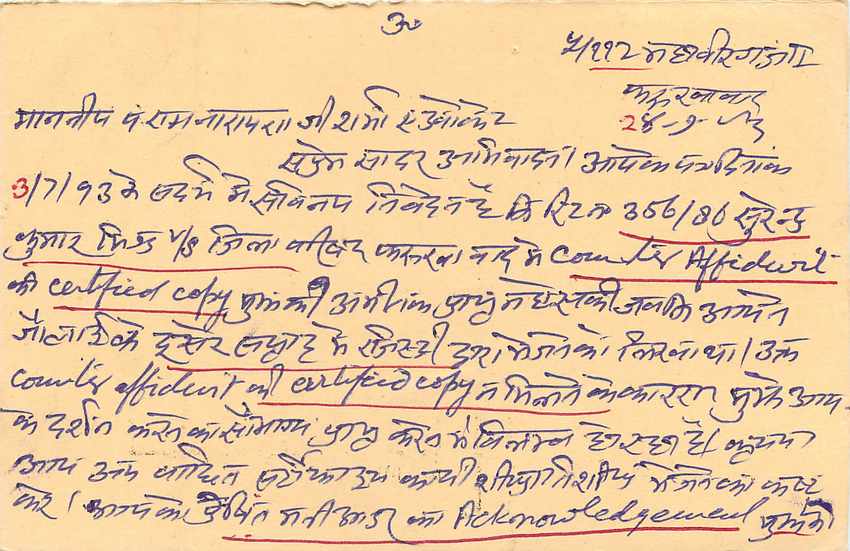 ॐ
5/112 महावीरगंज I
फर्रुखाबाद
28-7-93
माननीय पं. रामनारायण जी शर्मा एडवोकेट
सप्रेम सादर अभिवादन। आपके पत्र दिनांक
3/7/93 के सदर्भ में सविनय निवेदन है कि रिट नं 356/86 सुरेन्द्र
कुमार मिश्र V/S जिला परिषद फर्रुखाबाद में Counter Affidavit
की certified copy मुझको अभी तक प्राप्त न हो सकी जबकि आपने
जौलाई के दूसरे सप्ताह में रजिस्ट्री द्वारा भेजने को लिखा था। उक्त
Counter affidavit की certified copy न मिलने के कारण मुझे आप
के दर्शन करने का सौभाग्य प्राप्त करने में विलम्ब हो रहा है। कृपया
आप उक्त वांछित सर्टीफाइड कापी शीघ्रातिशीघ्र भेजने का कष्ट
करें। आपको प्रेषित मनीआर्डर का Acknowledgement मुझको